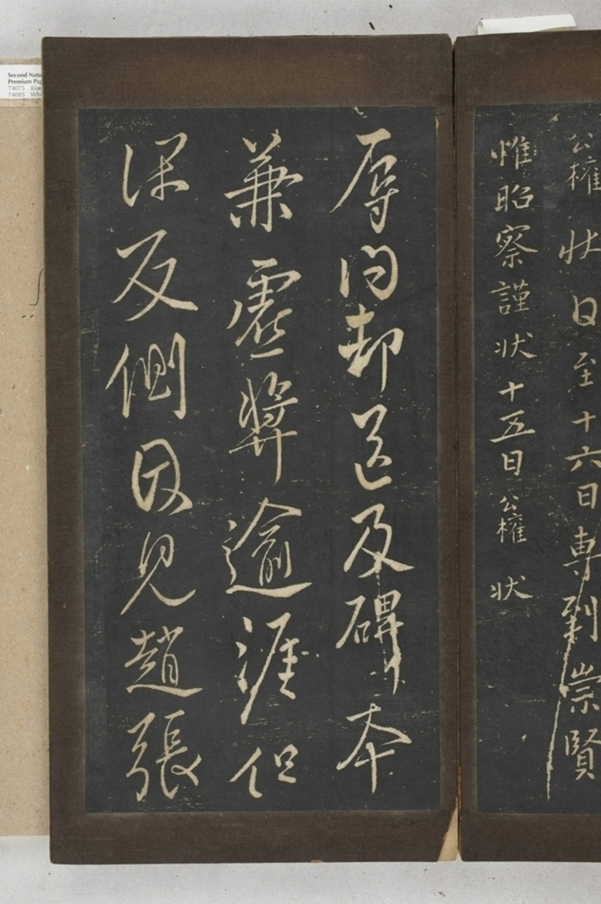 公權 狀 日至十六日專到崇賢
惟昭察謹狀十五日 公權 狀
辱問却送及碑本
兼虛弊逾涯但
深反側因見趙張
Second Natu
Premium Pap